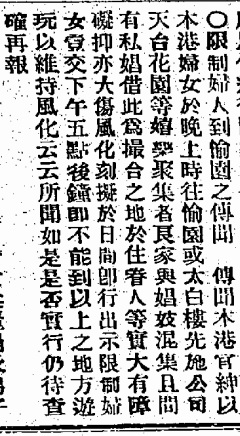 〇限制婦人到愉園之傳聞　傳聞本港官紳以
本港婦女於晚上時往愉園或太白樓先施公司
天台花園等嬉戲聚集者良家與娼妓混集且間
有私娼借此爲撮合之地於住眷人等實大有障
礙抑亦大傷風化刻擬於日間卽行出示限制婦
女壹交下午五點後鐘卽不能到以上之地方遊
玩以維持風化云云所聞如是是否實行仍待查
確再報